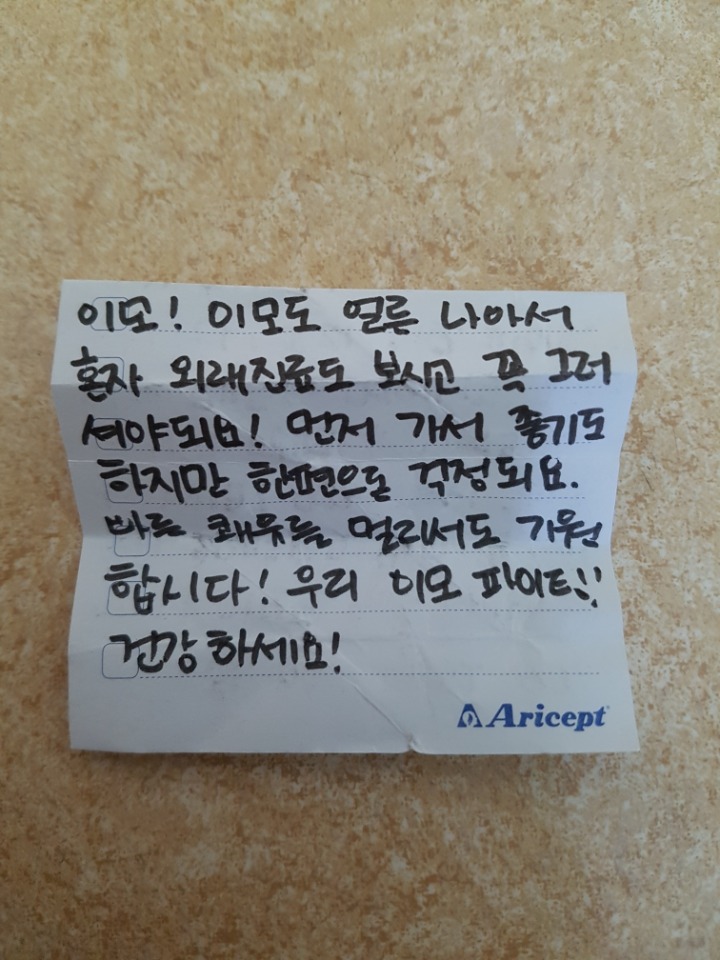 이모! 이모도 얼른 나아서
혼자 외래진료도 보시고 꼭 그러
셔야되요! 먼저 가서 좋기도
하지만 한편으론 걱정되요.
빠른 쾌유를 멀리서도 기원
합시다! 우리 이모 파이트!!
건강하세요!
Aricept